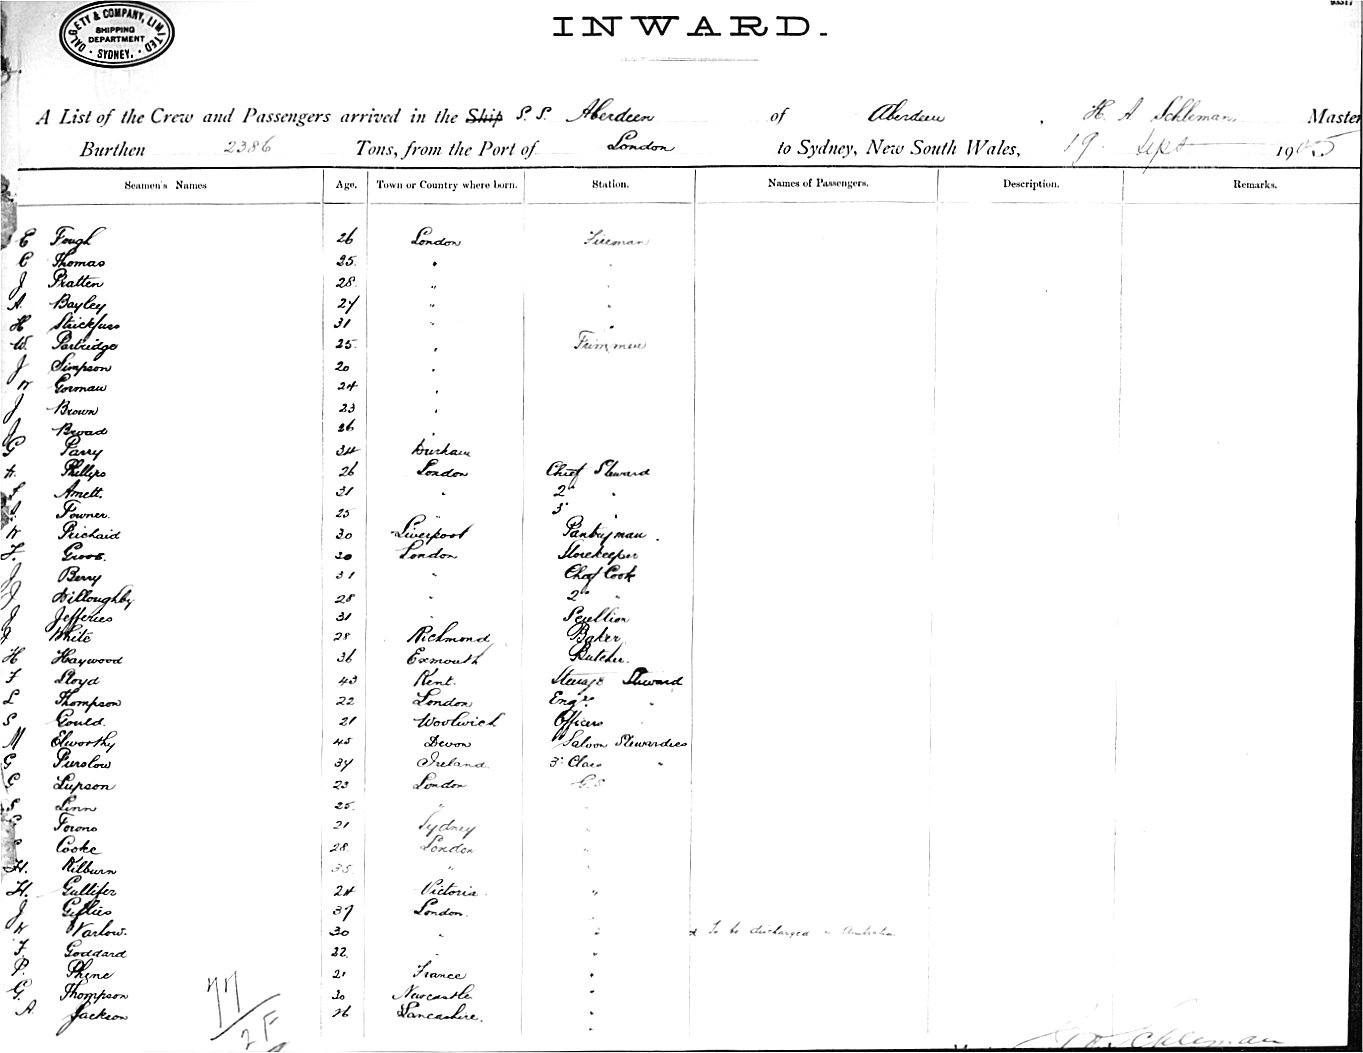 DALGETY & COMPANY, LIMITED
SHIPPING
DEPARTMENT
SYDNEY.
INWARD.
A List of the Crew and Passengers arrived in the Ship S.S. Aberdeen of Aberdeen, H. A. Schleman, Master
Burthen 2386 Tons, from the Port of London to Sydney, New South Wales, 19 Sept 1905
Seamen's Names Age. Town or Country where born. Station. Names of Passengers. Description. Remarks.
E Fough 26 London Fireman
C Thomas 25 " "
J Pratten 28 " "
A. Bayley 27 " "
H Strickfuss 31 " "
W. Partridge 25 " Trimmer
J Simpson 20 "
W Gorman 24 "
J Brown 23 "
J Broad 26 "
G Parry 34 Durham
H. Phillips 26 London Chief Steward
Amett. 31 " 2nd "
Towner. 25 " 3rd "
W Prichard 30 Liverpool Pantryman.
F. Groos. 30 London Storekeeper
J Berry 31 " Chef Cook
J Willoughby 28 " 2nd "
J Jefferies 31 " Scullion
White 28 Richmond Baker
H Haywood 36 Exmouth Butcher.
F Lloyd 43 Kent. Steerage Steward
L Thompson 22 London Engrs "
S Gould. 21 Woolwich Officers
M Elworthy 45 Devon Saloon Stewardess
G Purslow 34 Ireland. 3rd Class "
G Lupson 23 London G.S
S Linn 25 " "
Torons 21 Sydney "
Cooke 28 London "
H. Kilburn 35 " "
H. Gullifer 24 Victoria. "
J Gillies 37 London. "
W Varlow. 30 " " To be discharged in Australia
F. Goddard 22. " "
P. Phene 21 France "
G. Thompson 30 Newcastle "
A. Jackson 26 Lancashire. "
77/2F
Schleman